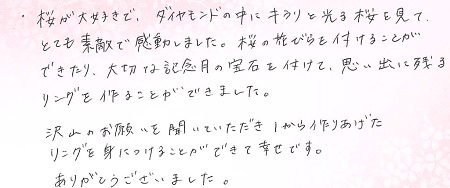 ・桜が大好きで、ダイヤモンドの中にキラリと光る桜を見て、
とても素敵で感動しました。桜の花びらを付けることが
できたり、大切な記念月の宝石を付けて、思い出に残る
リングを作ることができました。
沢山のお願いを聞いていただき1から作りあげた
リングを身につけることができて幸せです。
ありがとうございました。